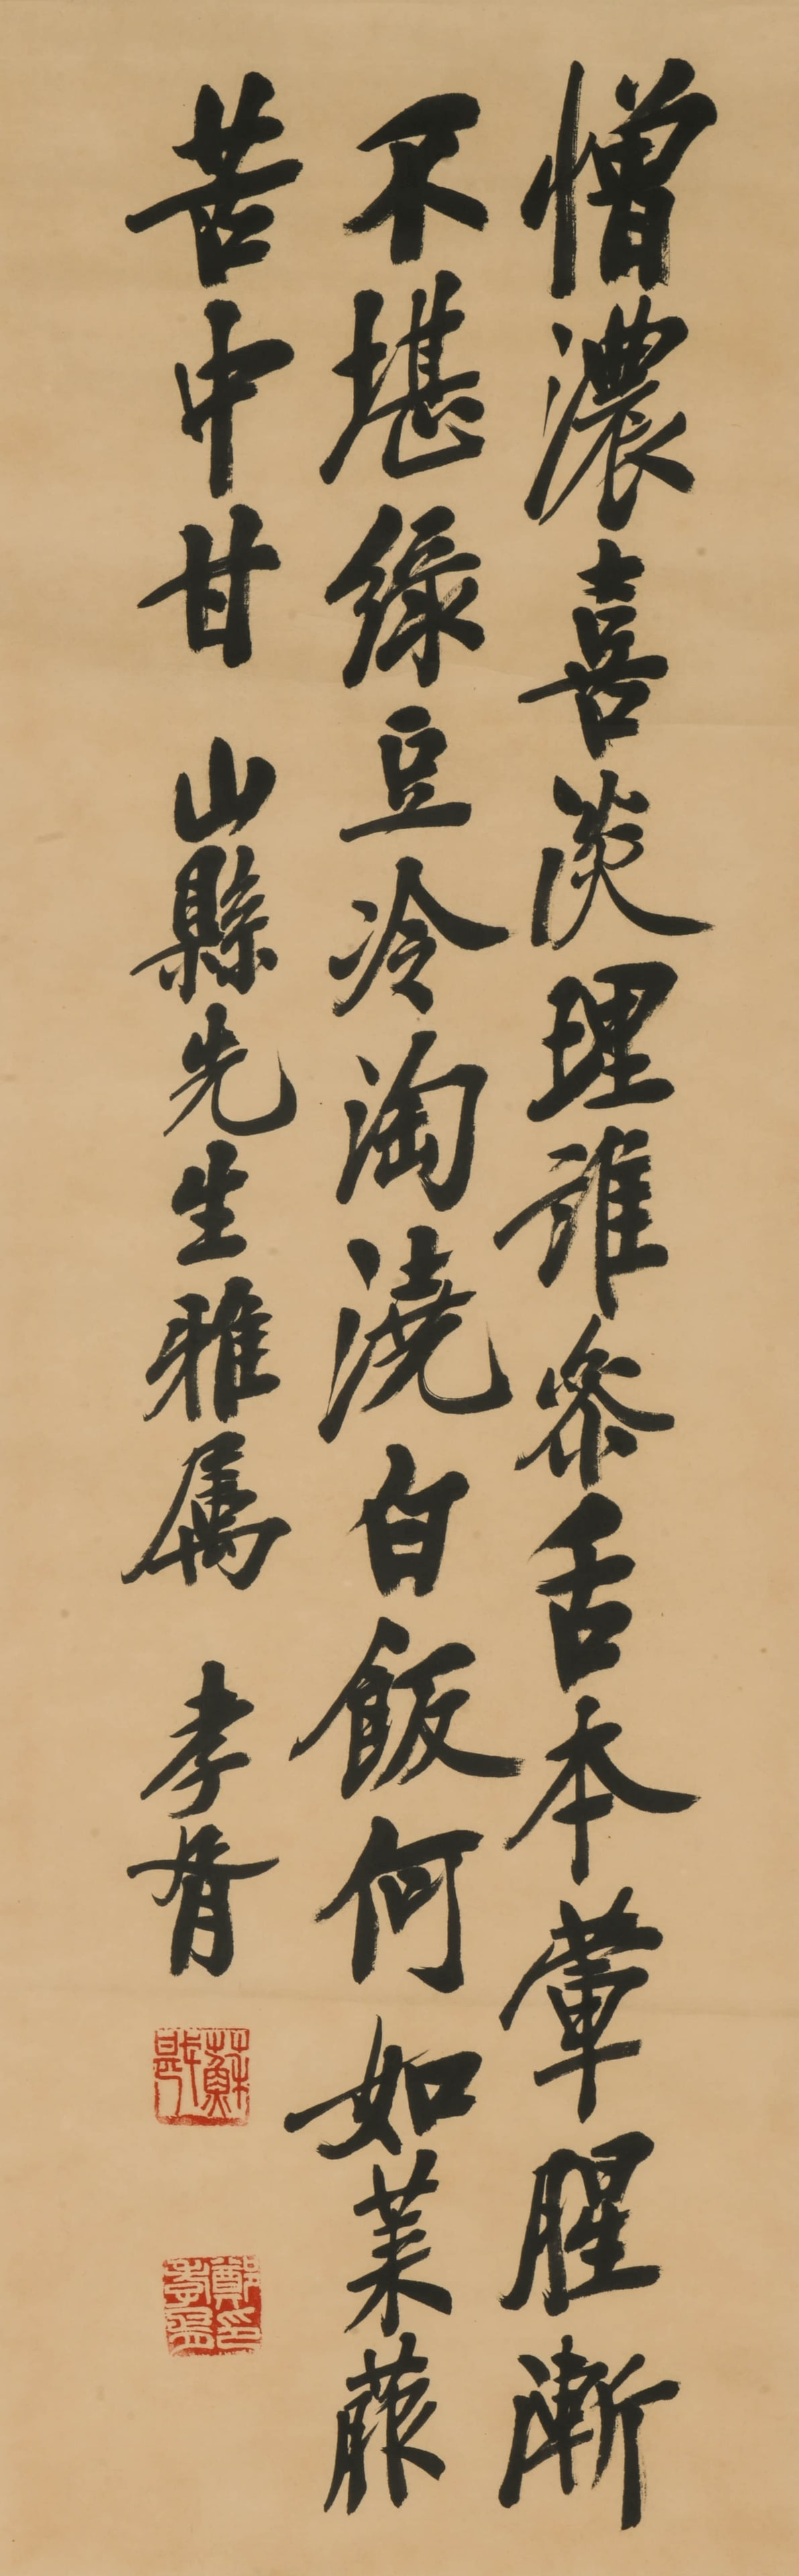 憎濃喜淡理誰參舌本葷腥漸
不堪綠豆冷淘澆白飯何如菜菔
苦中甘 山縣先生雅屬 孝胥
蘇戡
鄭孝胥印